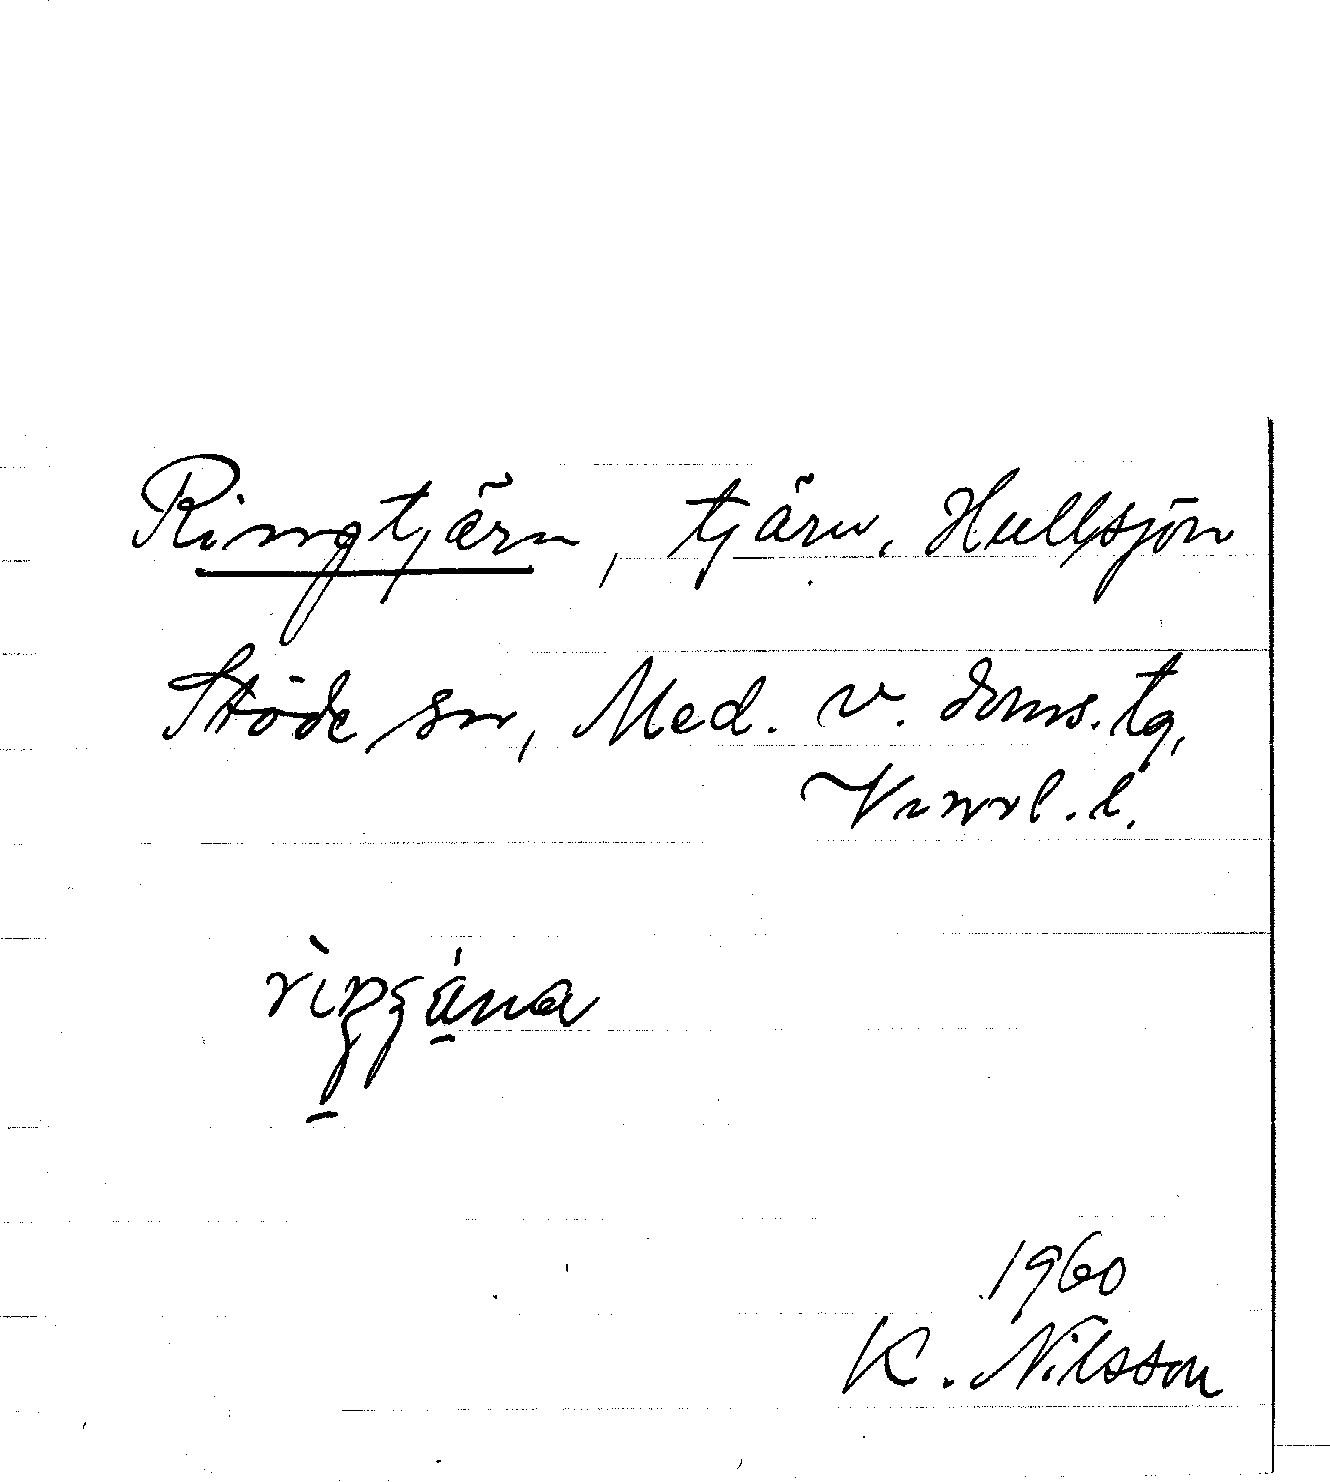 Ringtjärn, tjärn, Hullsjön
Stöde sn, Med. v. doms. tg,
Vnrl. l.
1960
K. Nilsson